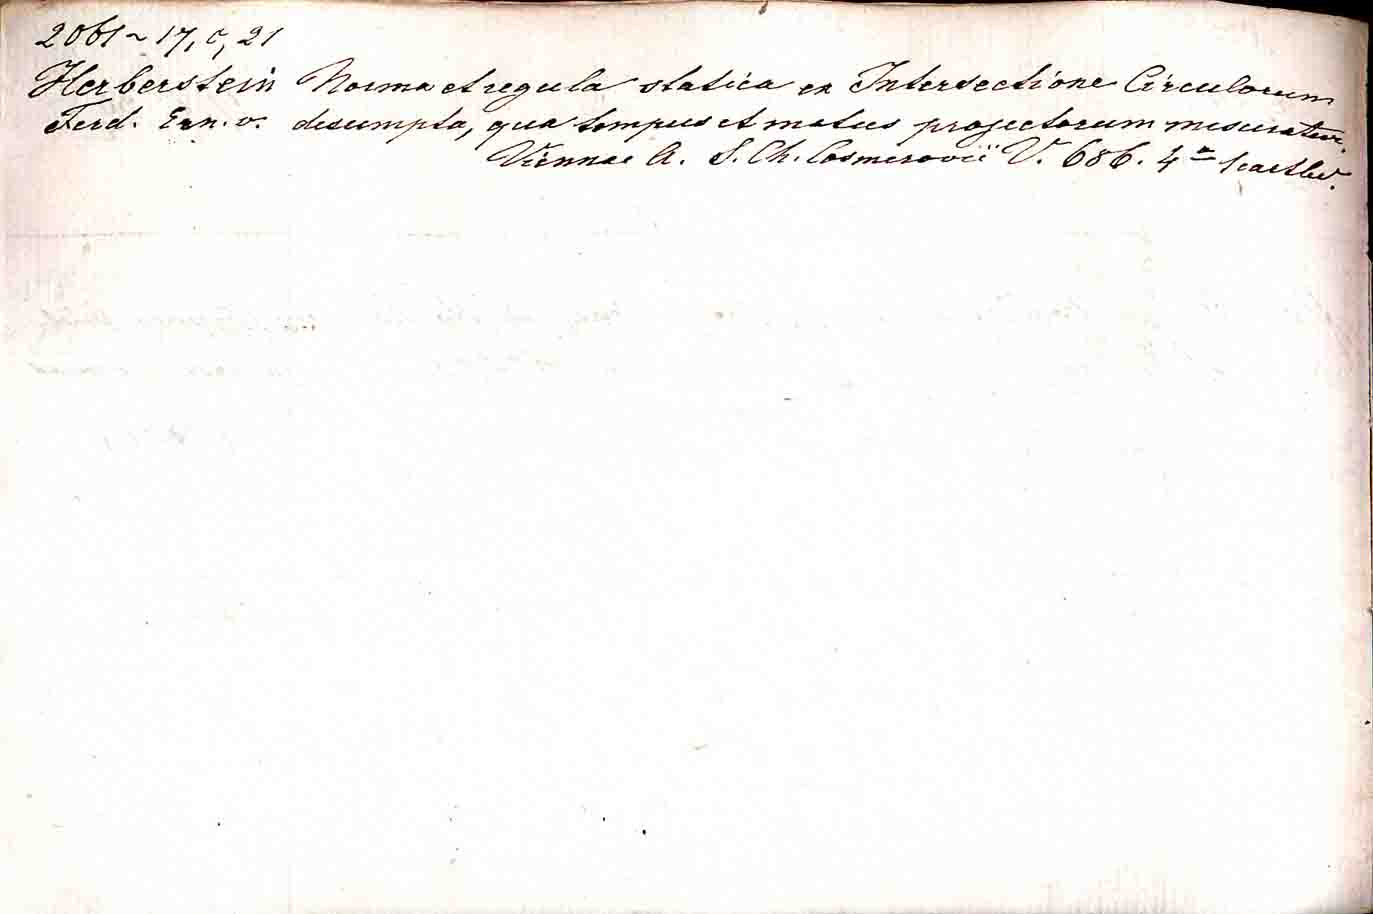 2061 ~ 17, c, 21
Herberstein Norma et regula statica ex Intersectione Circulorum
Ferd. Ern. v. desumpta, qua tempus et motus projectorum mesuratur.
Viennae A. S. Ch. Cosmerovii V. 686. 4°